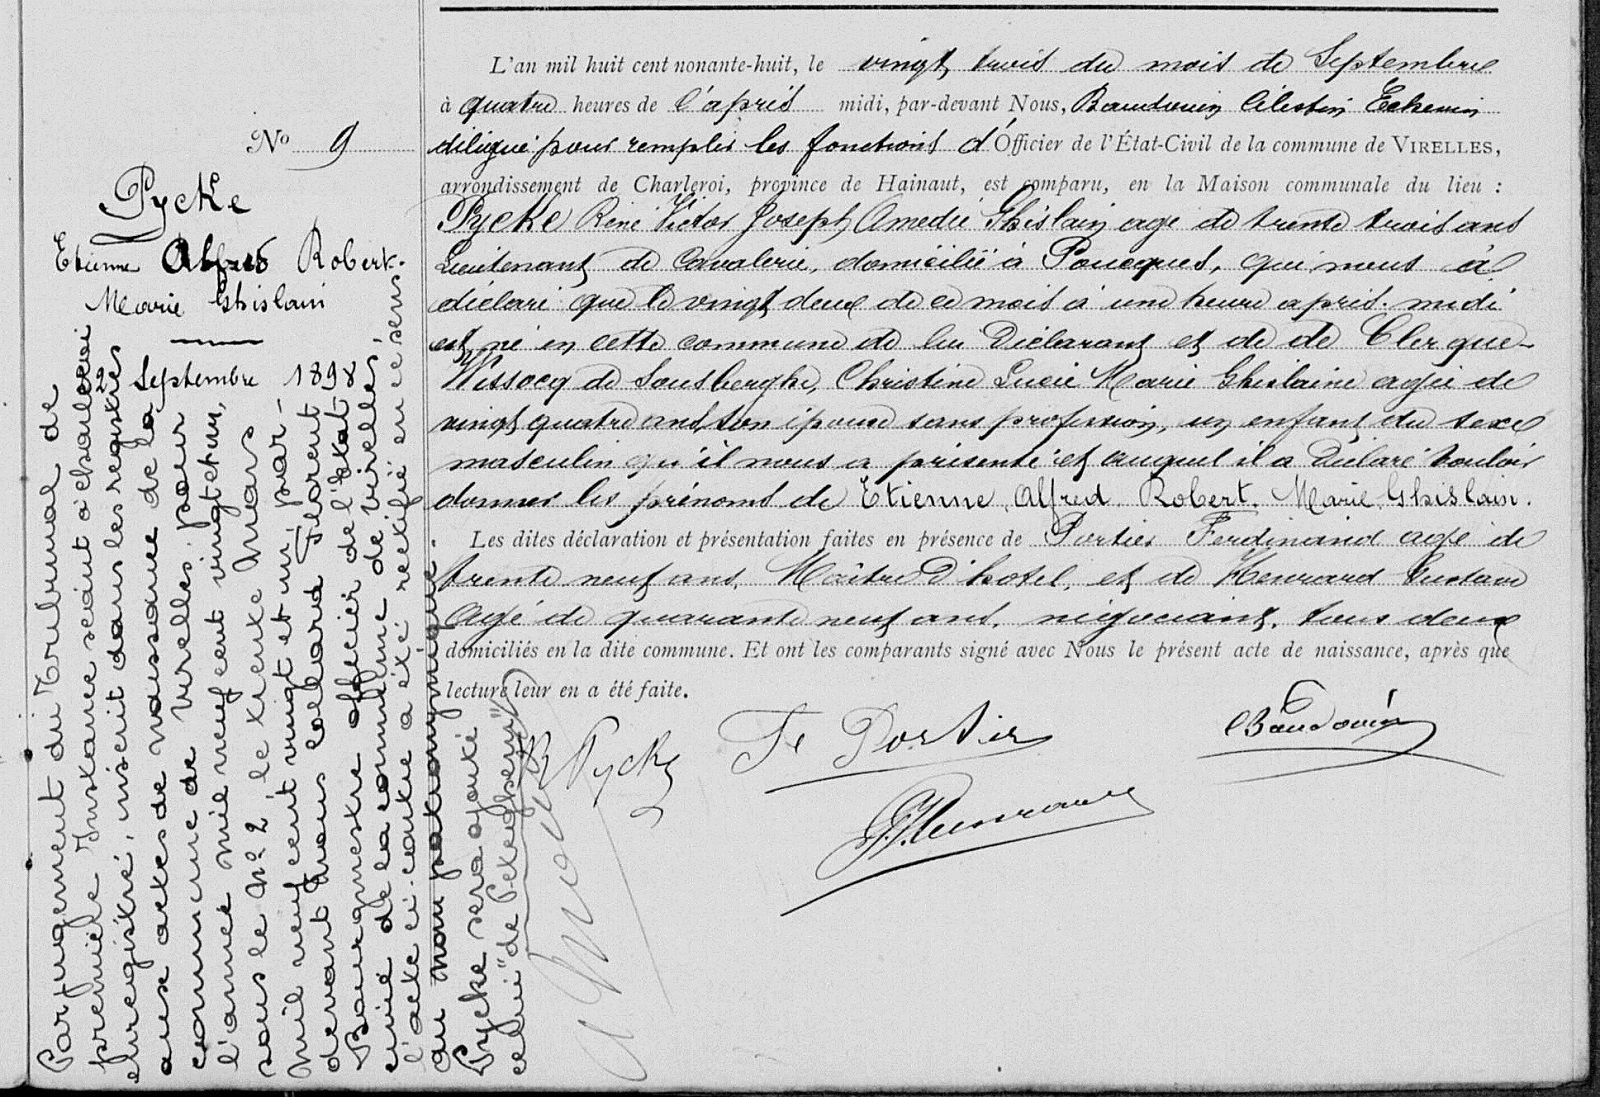 No 9
Pycke
Etienne Alfred Robert.
Marie Ghislain
22 Septembre 1898
L'an mil huit cent nonante-huit, le vingt trois du mois de Septembre
à quatre heures de l'après midi, par-devant Nous, Baudouin Célestin Echevin
délégué pour remplir les fonctions d'Officier de l'État-Civil de la commune de VIRELLES,
arrondissement de Charleroi, province de Hainaut, est comparu, en la Maison communale du lieu :
Pycke René Victor Joseph Amedée Ghislain agé de trente trois ans
Lieutenant de Cavalerie, domicilié à Poucques, qui nous a
déclaré que le vingt deux de ce mois à une heure après-midi
est né en cette commune de lui Déclarant et de de Clerque-
Wissocq de Sousberghe, Christine Lucie Marie Ghislaine agée de
vingt quatre ans, son épouse sans profession, un enfant du sexe
masculin qu'il nous a présenté et auquel il a Déclaré vouloir
donner les prénoms de Etienne, Alfred. Robert. Marie. Ghislain.
Les dites déclaration et présentation faites en présence de Portier Ferdinand agé de
trente neuf ans, Maître d'hotel, et de Henrard Gustave
agé de quarante neuf ans, négociant, tous deux
domiciliés en la dite commune. Et ont les comparants signé avec Nous le présent acte de naissance, après que
lecture leur en a été faite.
R Pycke
Fd Portier
CBaudouin
G. Henrard
Par jugement du Tribunal de
première Instance séant à Charleroi
enregistré, inscrit dans les registres
aux actes de naissance de la
commune de Virelles, pour
l'année mil neuf cent vingt et un,
sous le No 2, le trente Mars
mil neuf cent vingt et un, par-
devant Nous Collard Florent
Bourgmestre officier de l'état
civil de la commune de Virelles,
l'acte ci-contre a été rectifié en ce sens
au nom patronymique
Pycke sera ajouté
celui "de Peteghem"